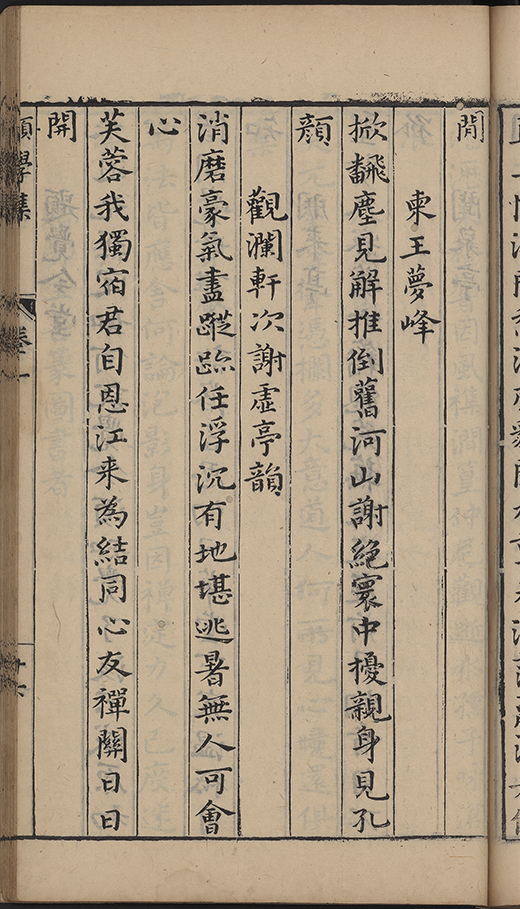 閒
柬王夢峰
掀飜塵見解推倒舊河山謝絕寰中擾親身見孔
顏
觀瀾軒次謝虛亭韻
消磨豪氣盡蹤跡任浮沉有地堪逃暑無人可會
心
芙蓉我獨宿君自恩江来為結同心友禪關日日
開
學集
卷一